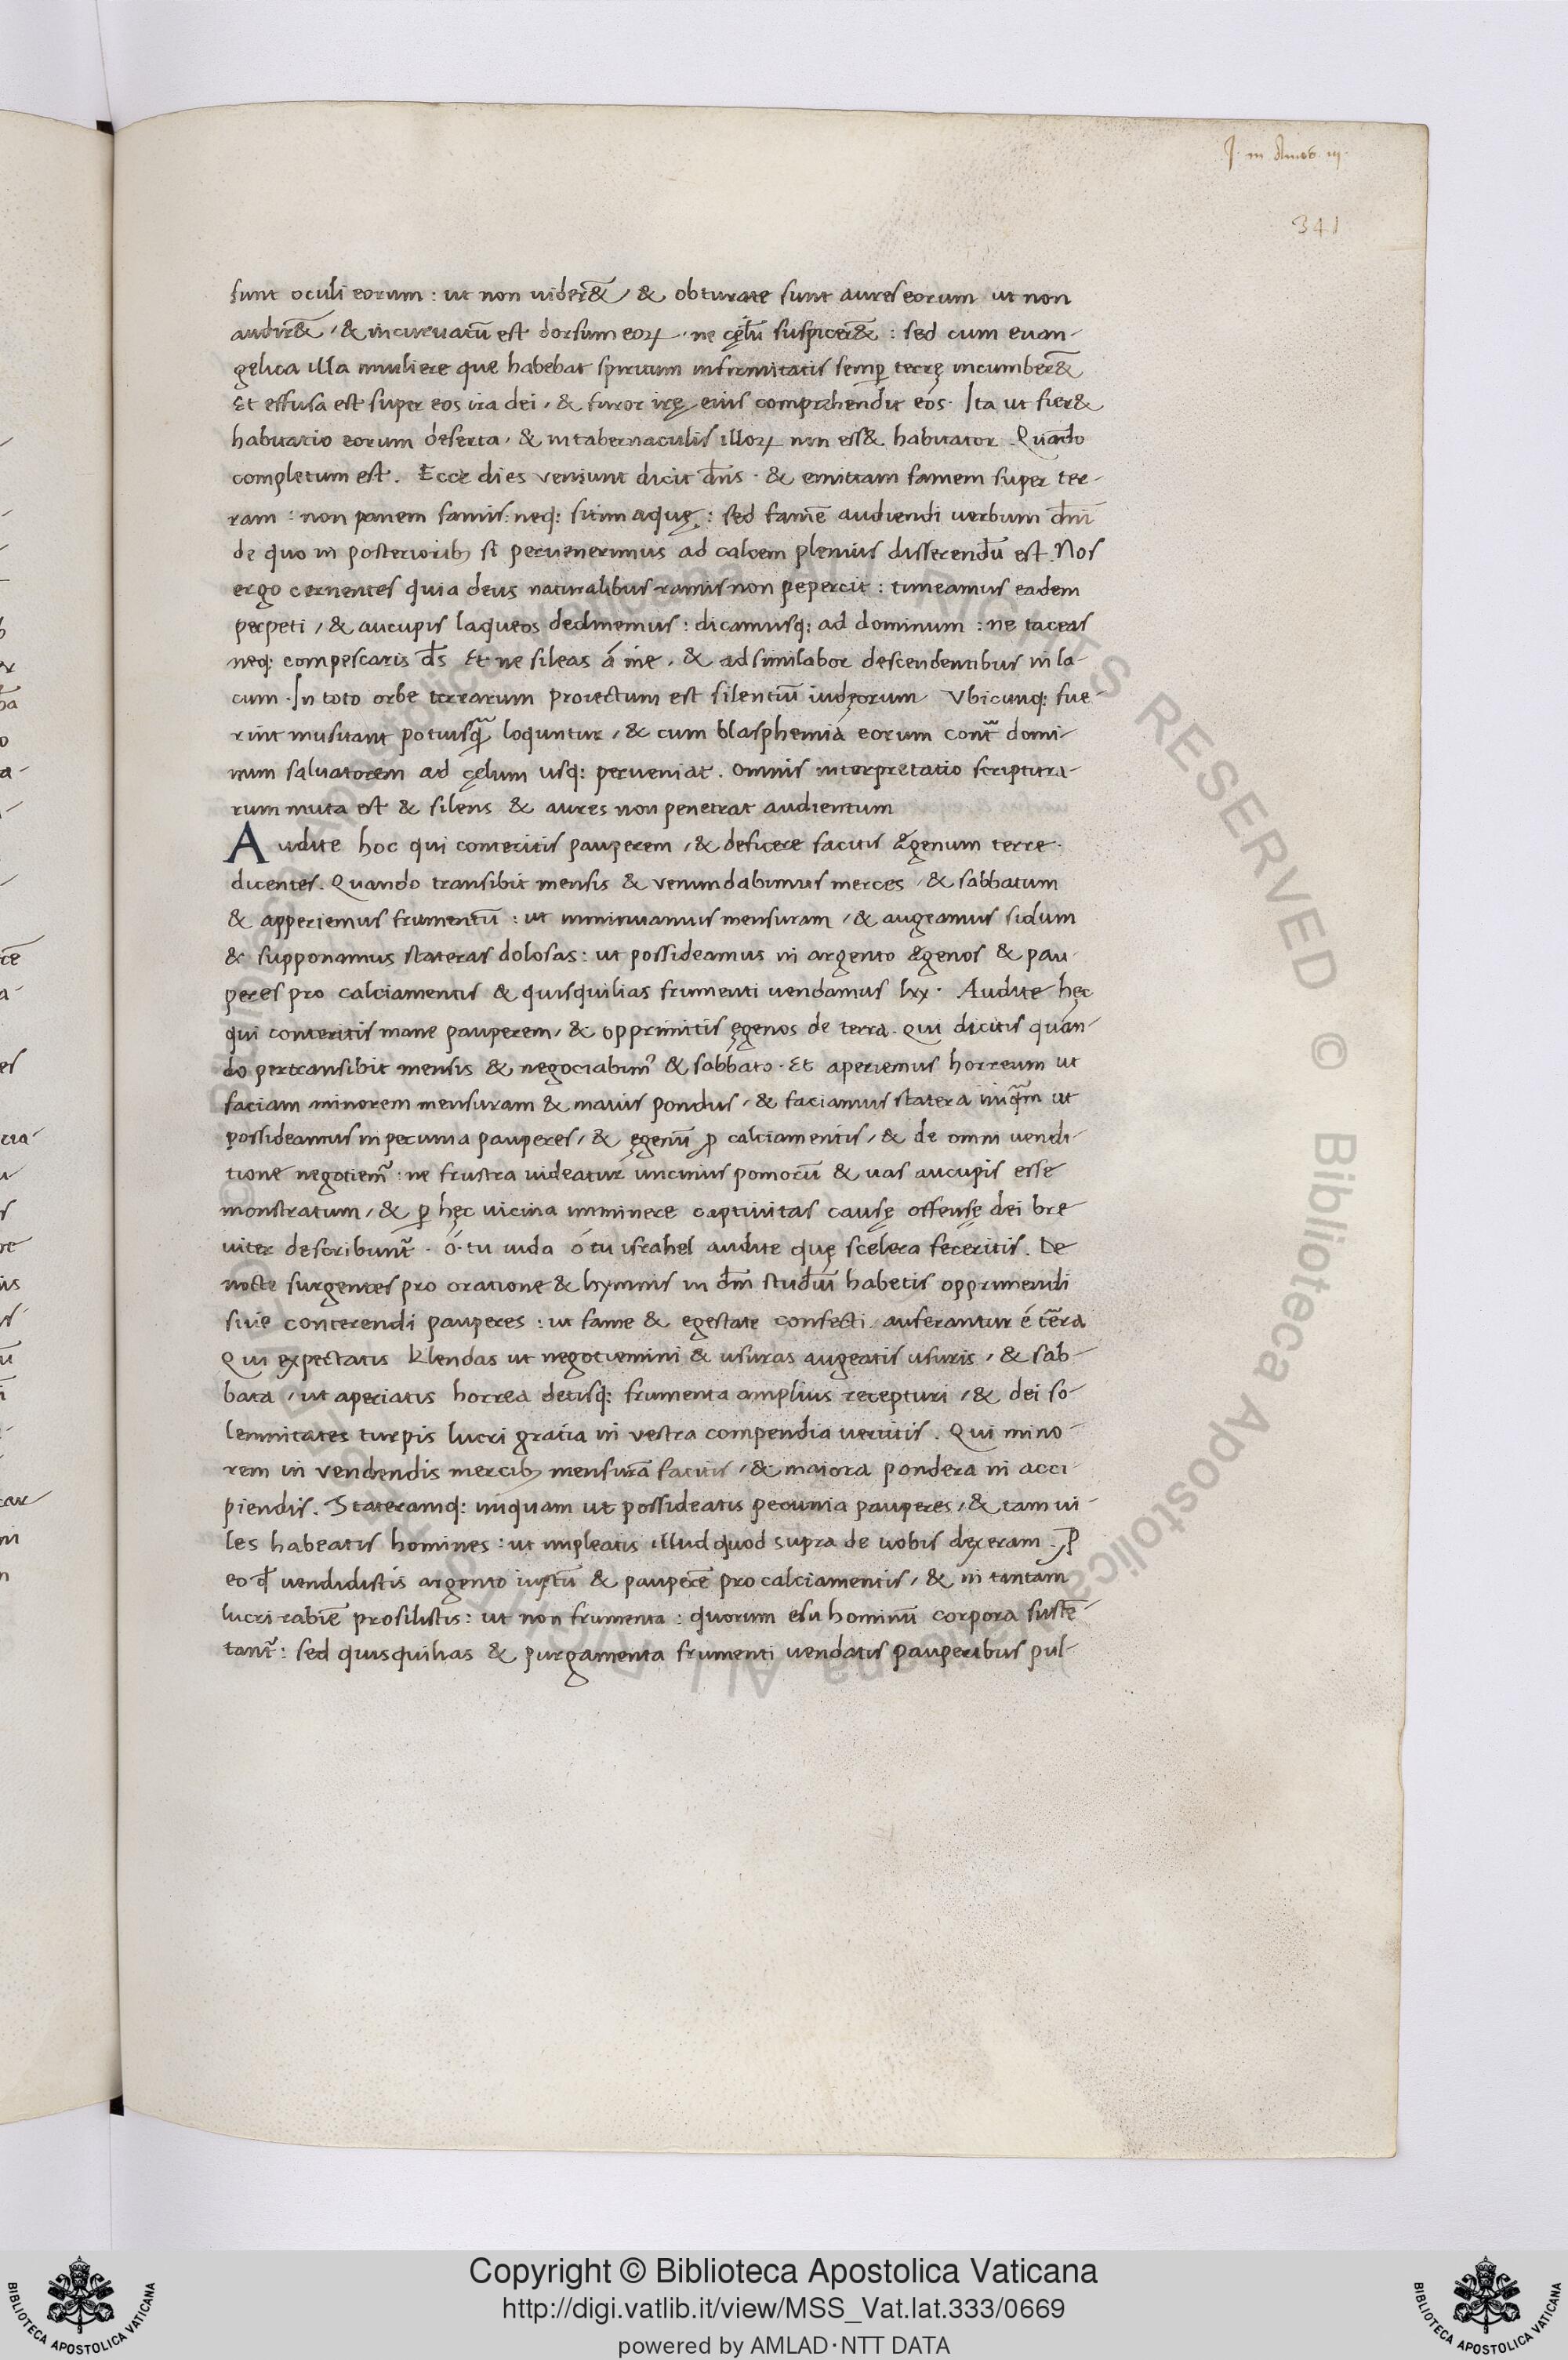 J. in Amos. iij.
341
sunt oculi eorum : ut non uider&̃ / & obturate sunt aures eorum ut non
audir&̃ / & incuruatũ est dorsum eoꝝ . ne cęlũ suspicer&̃ : sed cum euan-
gelica illa muliere que habebat spiritum infirmitatis semꝑ terrę incumber&̃
Et effusa est super eos ira dei / & furor irę eius comprehendit eos . Ita ut fier&
habitatio eorum deserta / & in tabernaculis illoꝝ non ess& habitator . Quando
completum est . Ecce dies veniunt dicit dñs . & emittam famem super ter-
ram : non panem famis : neq: sitim aquę : sed famẽ audiendi uerbum dñi
de quo in posteriorib; si peruenerimus ad calcem plenius disserendũ est . Nos
ergo cernentes quia deus naturalibus ramis non pepercit : timeamus eadem
perpeti / & aucupis laqueos declinemus : dicamusq: ad dominum : ne taceas
neq: compescaris d̃s Et ne sileas á me . & adsimilabor descendentibus in la-
cum . In toto orbe terrarum proiectum est silentiũ iudęorum Vbicunq: fue-
rint musitant potiusq̃ loquntur / & cum blasphemia eorum cont̃ domi-
num saluatorem ad cęlum usq: perueniat . omnis interpretatio scriptura-
rum muta est & silens & aures non penetrat audientum
Audite hoc qui conteritis pauperem / & deficere facitis ægenum terre .
dicentes . Quando transibit mensis & venundabimus merces / & sabbatum
& apperiemus frumentũ : ut imminuamus mensuram / & augeamus sidum
& supponamus stateras dolosas : ut possideamus in argento ægenos & pau-
peres pro calciamentis & quisquilias frumenti uendamus lxx . Audite hęc
qui conteritis mane pauperem / & opprimitis ęgenos de terra . qui dicitis quan-
do pertransibit mensis & negociabim⁹ & sabbato . Et aperiemus horreum ut
faciam minorem mensuram & maius pondus / & faciamus statera iniq̃m ut
possideamus in pecunia pauperes / & ęgenũ ꝓ calciamentis / & de omni uendi-
tione negotiem̃ : ne frustra uideatur uncinus pomorũ & uas aucupis esse
monstratum / & ꝑ hęc uicina imminere captiuitas causę offensę dei bre
uiter describunt̃ . ó . tu iuda ó tu israhel audite quę scelera feceritis . De
nocte surgentes pro oratione & hymnis in dñm studiũ habetis opprimendi
siue conterendi pauperes : ut fame & egestate confecti auferantur é tẽra
Qui expectatis klendas ut negotiemini & usuras augeatis usuris / & sab-
bata / ut aperiatis horrea detisq: frumenta amplius recepturi / & dei so-
lemnitates turpis lucri gratia in vestra compendia uertitis . Qui mino-
rem in vendendis mercib; mensurã facitis / & maiora pondera in acci-
piendis . Stateramq: iniquam ut possideatis pecunia pauperes / & tam ui-
les habeatis homines : ut impleatis illud quod supra de uobis dixeram . ꝓ
eo ꝙ uendidistis argento iustũ & pauperẽ pro calciamentis / & in tantam
lucri rabiẽ prosilistis : ut non frumenta : quorum esu hominũ corpora sustẽ-
tant̃ : sed quisquilias & purgamenta frumenti uendatis pauperibus pul-
Copyright © Biblioteca Apostolica Vaticana
http://digi.vatlib.it/view/MSS_Vat.lat.333/0669
powered by AMLAD·NTT DATA